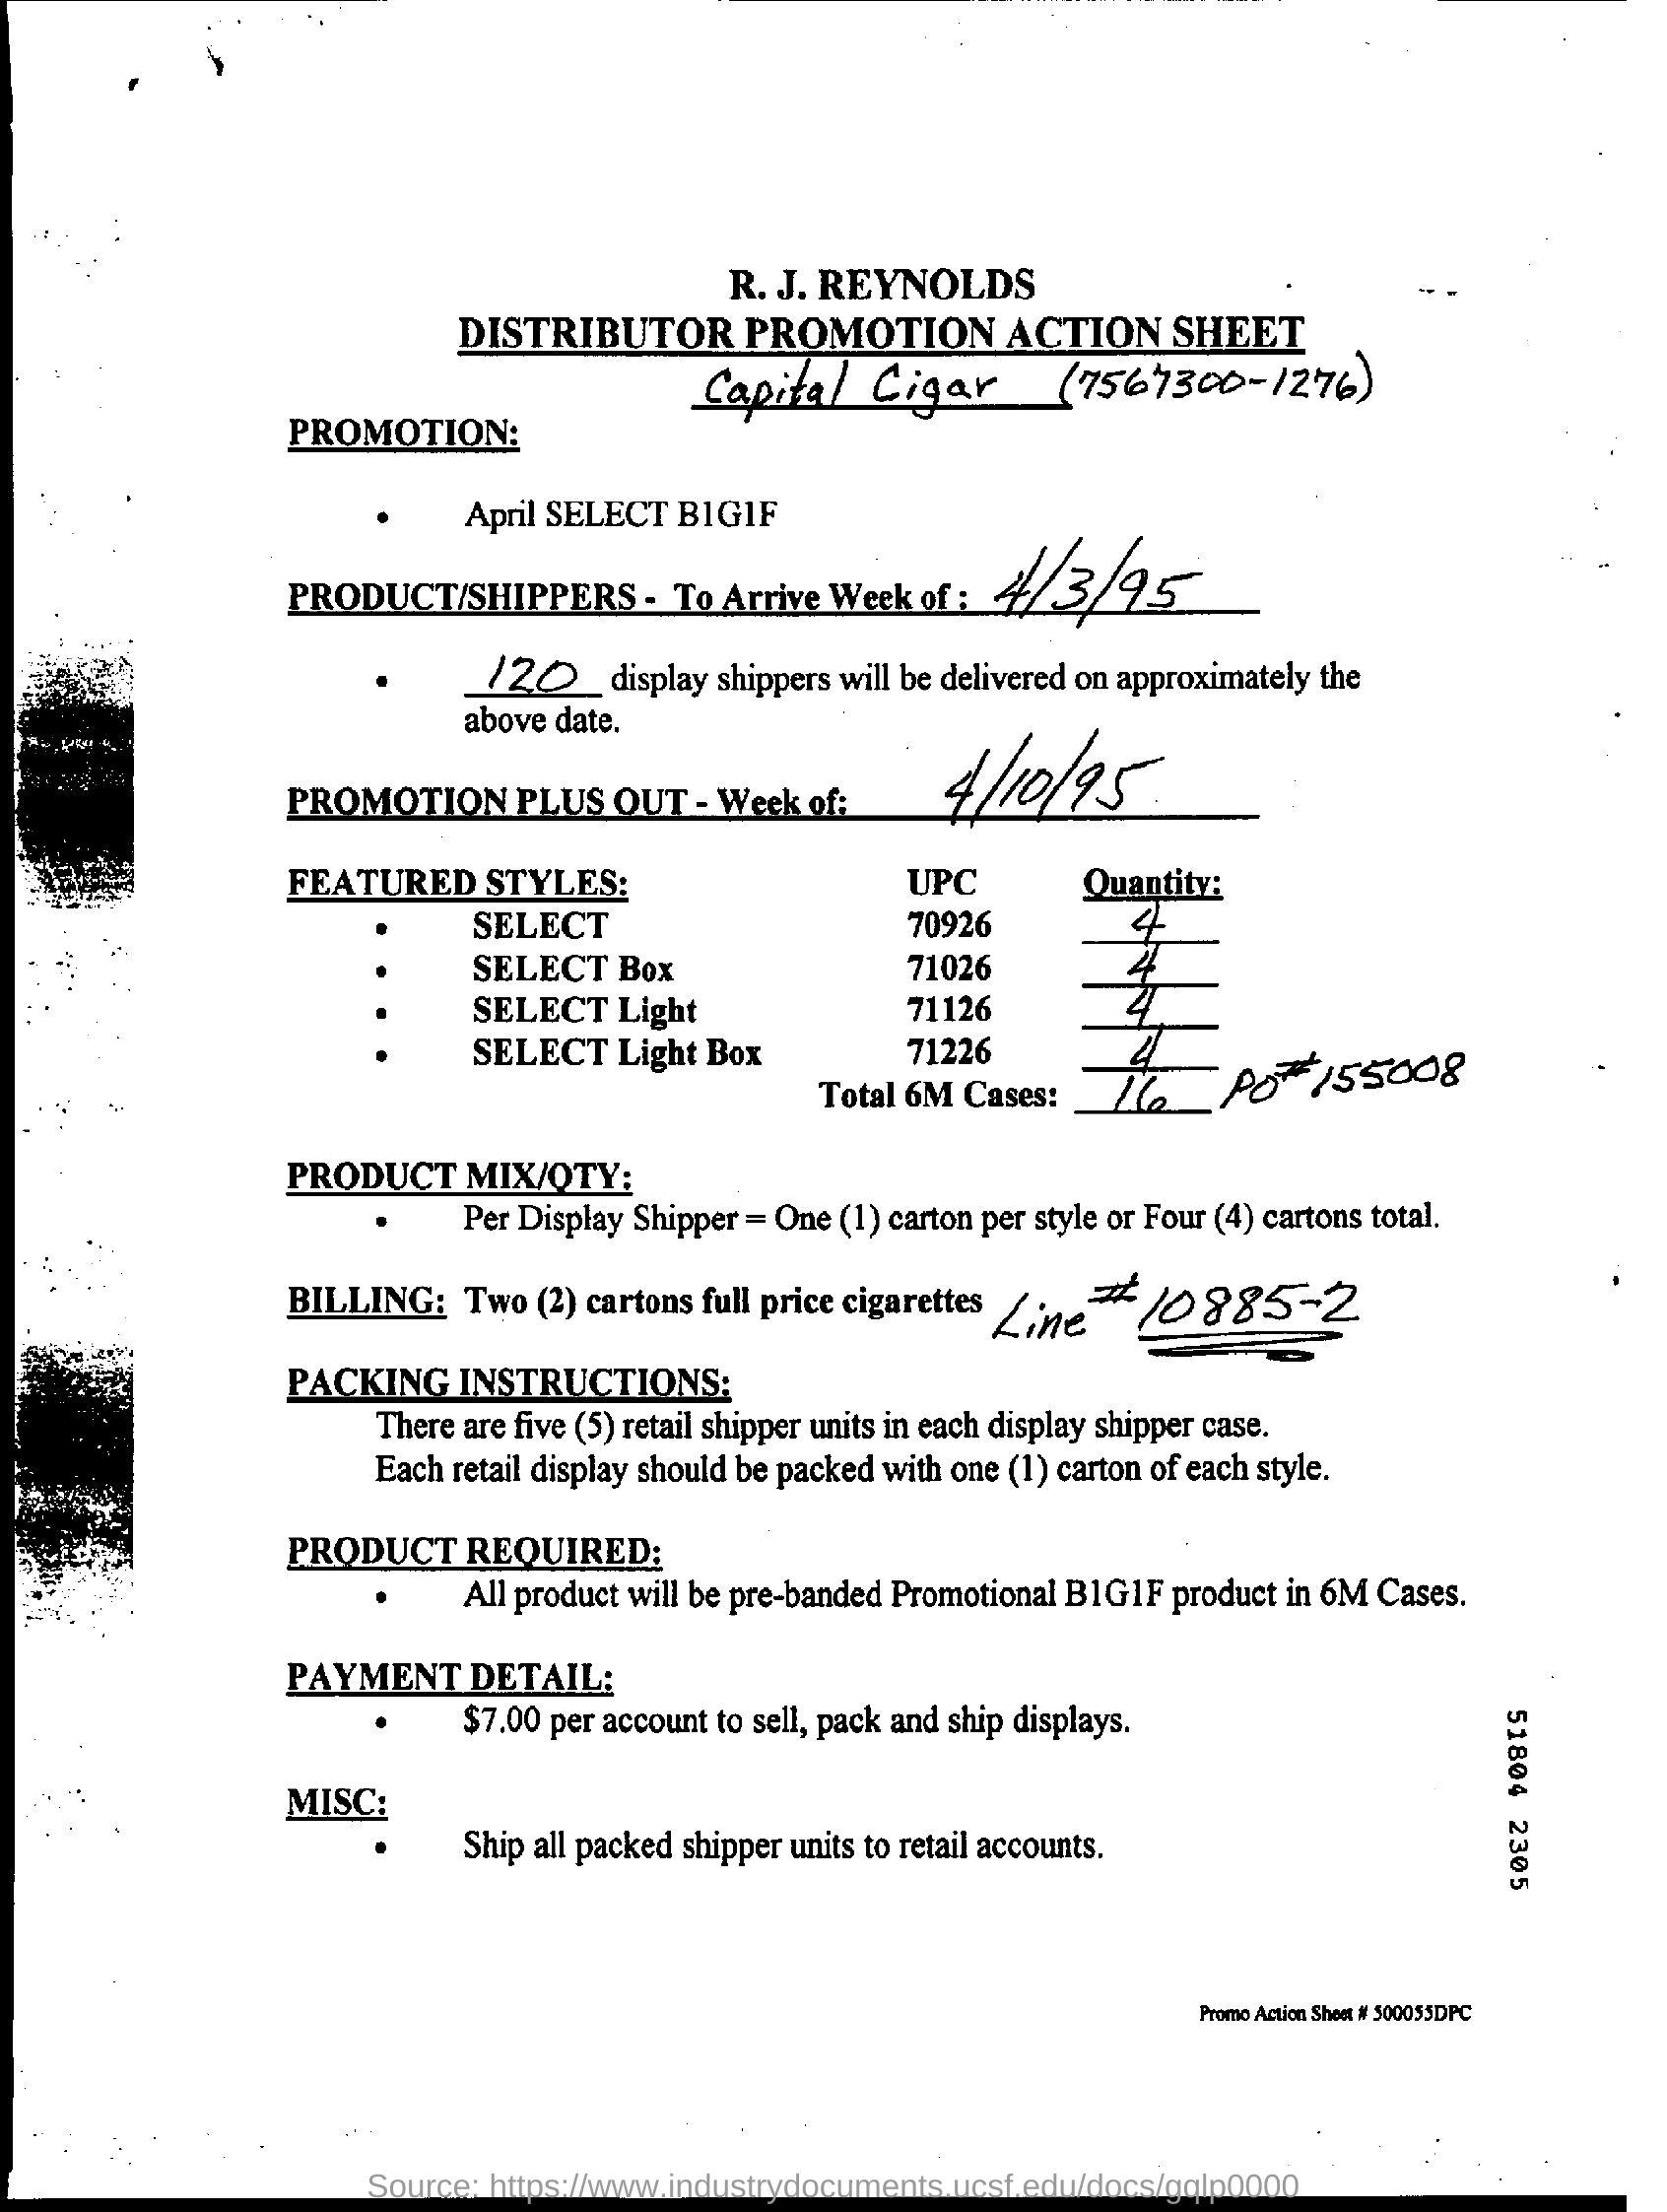 R. J. REYNOLDS
DISTRIBUTOR PROMOTION ACTION SHEET
Capital Cigar (7567300-1276)
PROMOTION:
• April SELECT B1G1F
PRODUCT/SHIPPERS - To Arrive Week of : 4/3/95
• 120 display shippers will be delivered on approximately the
above date.
PROMOTION PLUS OUT - Week of: 4/10/95
FEATURED STYLES: UPC Quantity:
• SELECT 70926 4
• SELECT Box 71026 4
• SELECT Light 71126 4
• SELECT Light Box 71226 4
Total 6M Cases: 16 PO# 155008
PRODUCT MIX/QTY:
• Per Display Shipper = One (1) carton per style or Four (4) cartons total.
BILLING: Two (2) cartons full price cigarettes Line # 10885-2
PACKING INSTRUCTIONS:
There are five (5) retail shipper units in each display shipper case.
Each retail display should be packed with one (1) carton of each style.
PRODUCT REQUIRED:
• All product will be pre-banded Promotional B1G1F product in 6M Cases.
PAYMENT DETAIL:
• $7.00 per account to sell, pack and ship displays.
MISC:
• Ship all packed shipper units to retail accounts.
51804 2305
Promo Action Sheet # 500055DPC
Source: https://www.industrydocuments.ucsf.edu/docs/gqlp0000